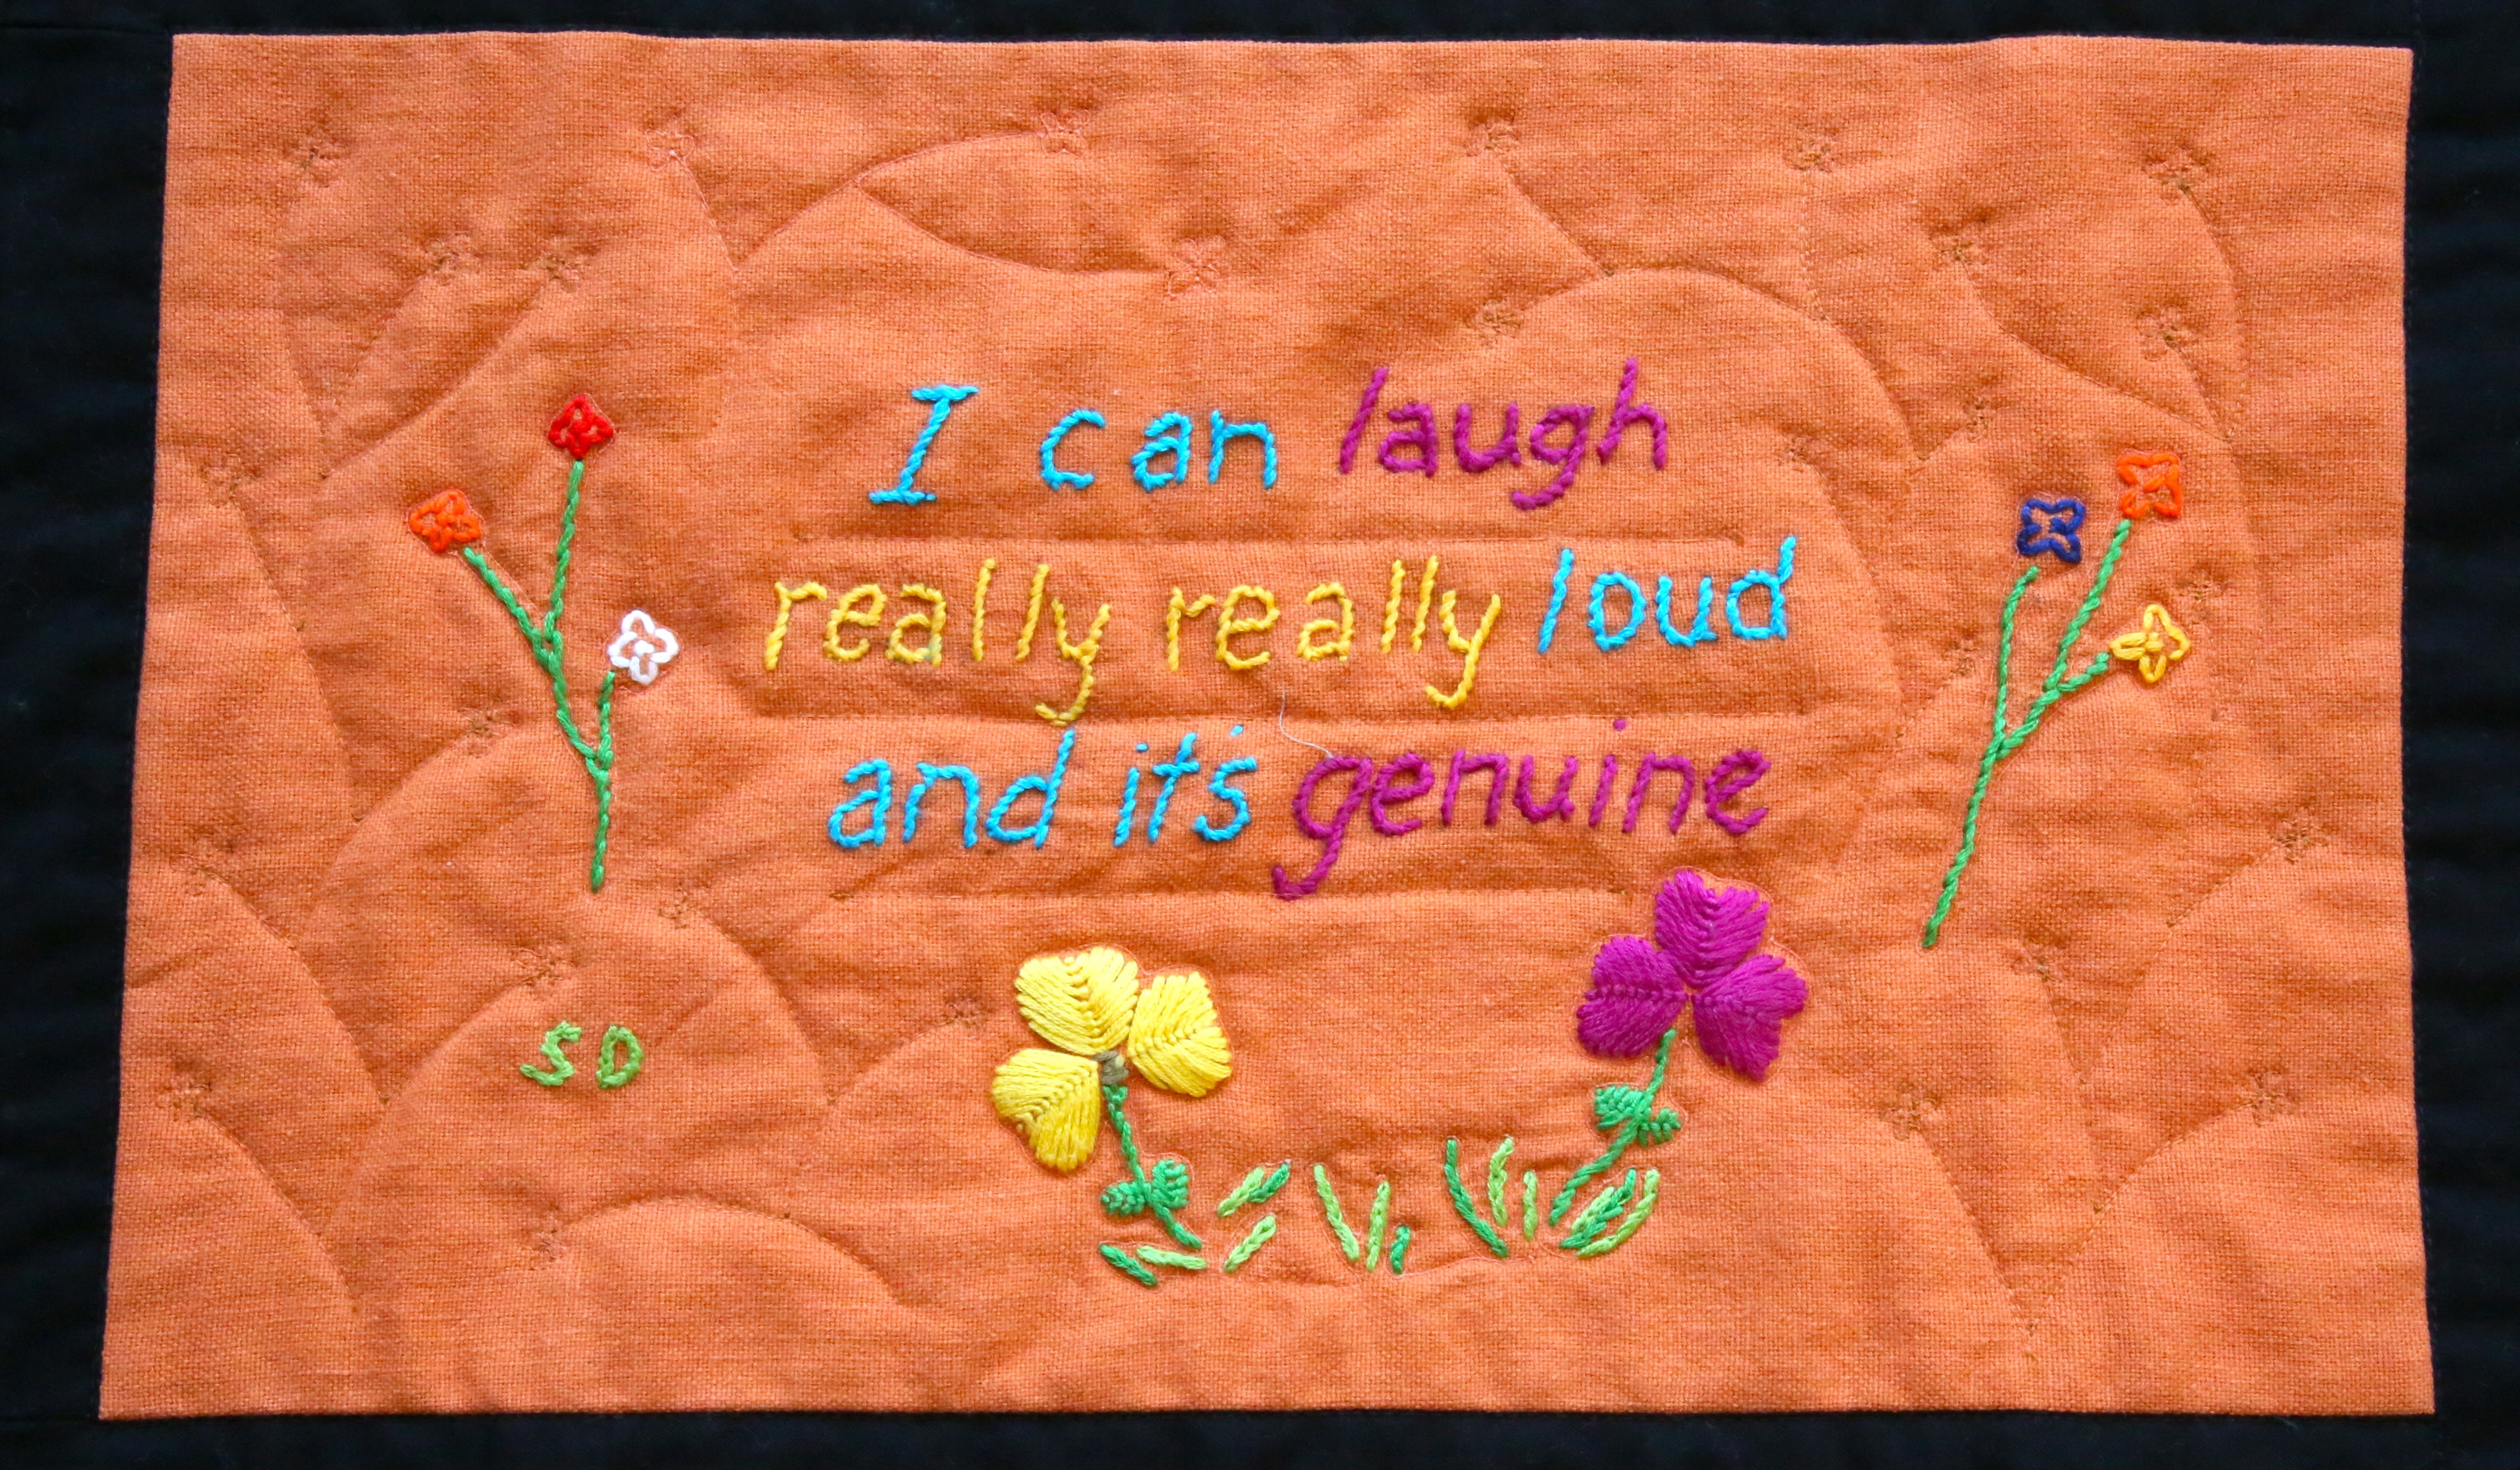 I can laugh
really really loud
and it's genuine
SD